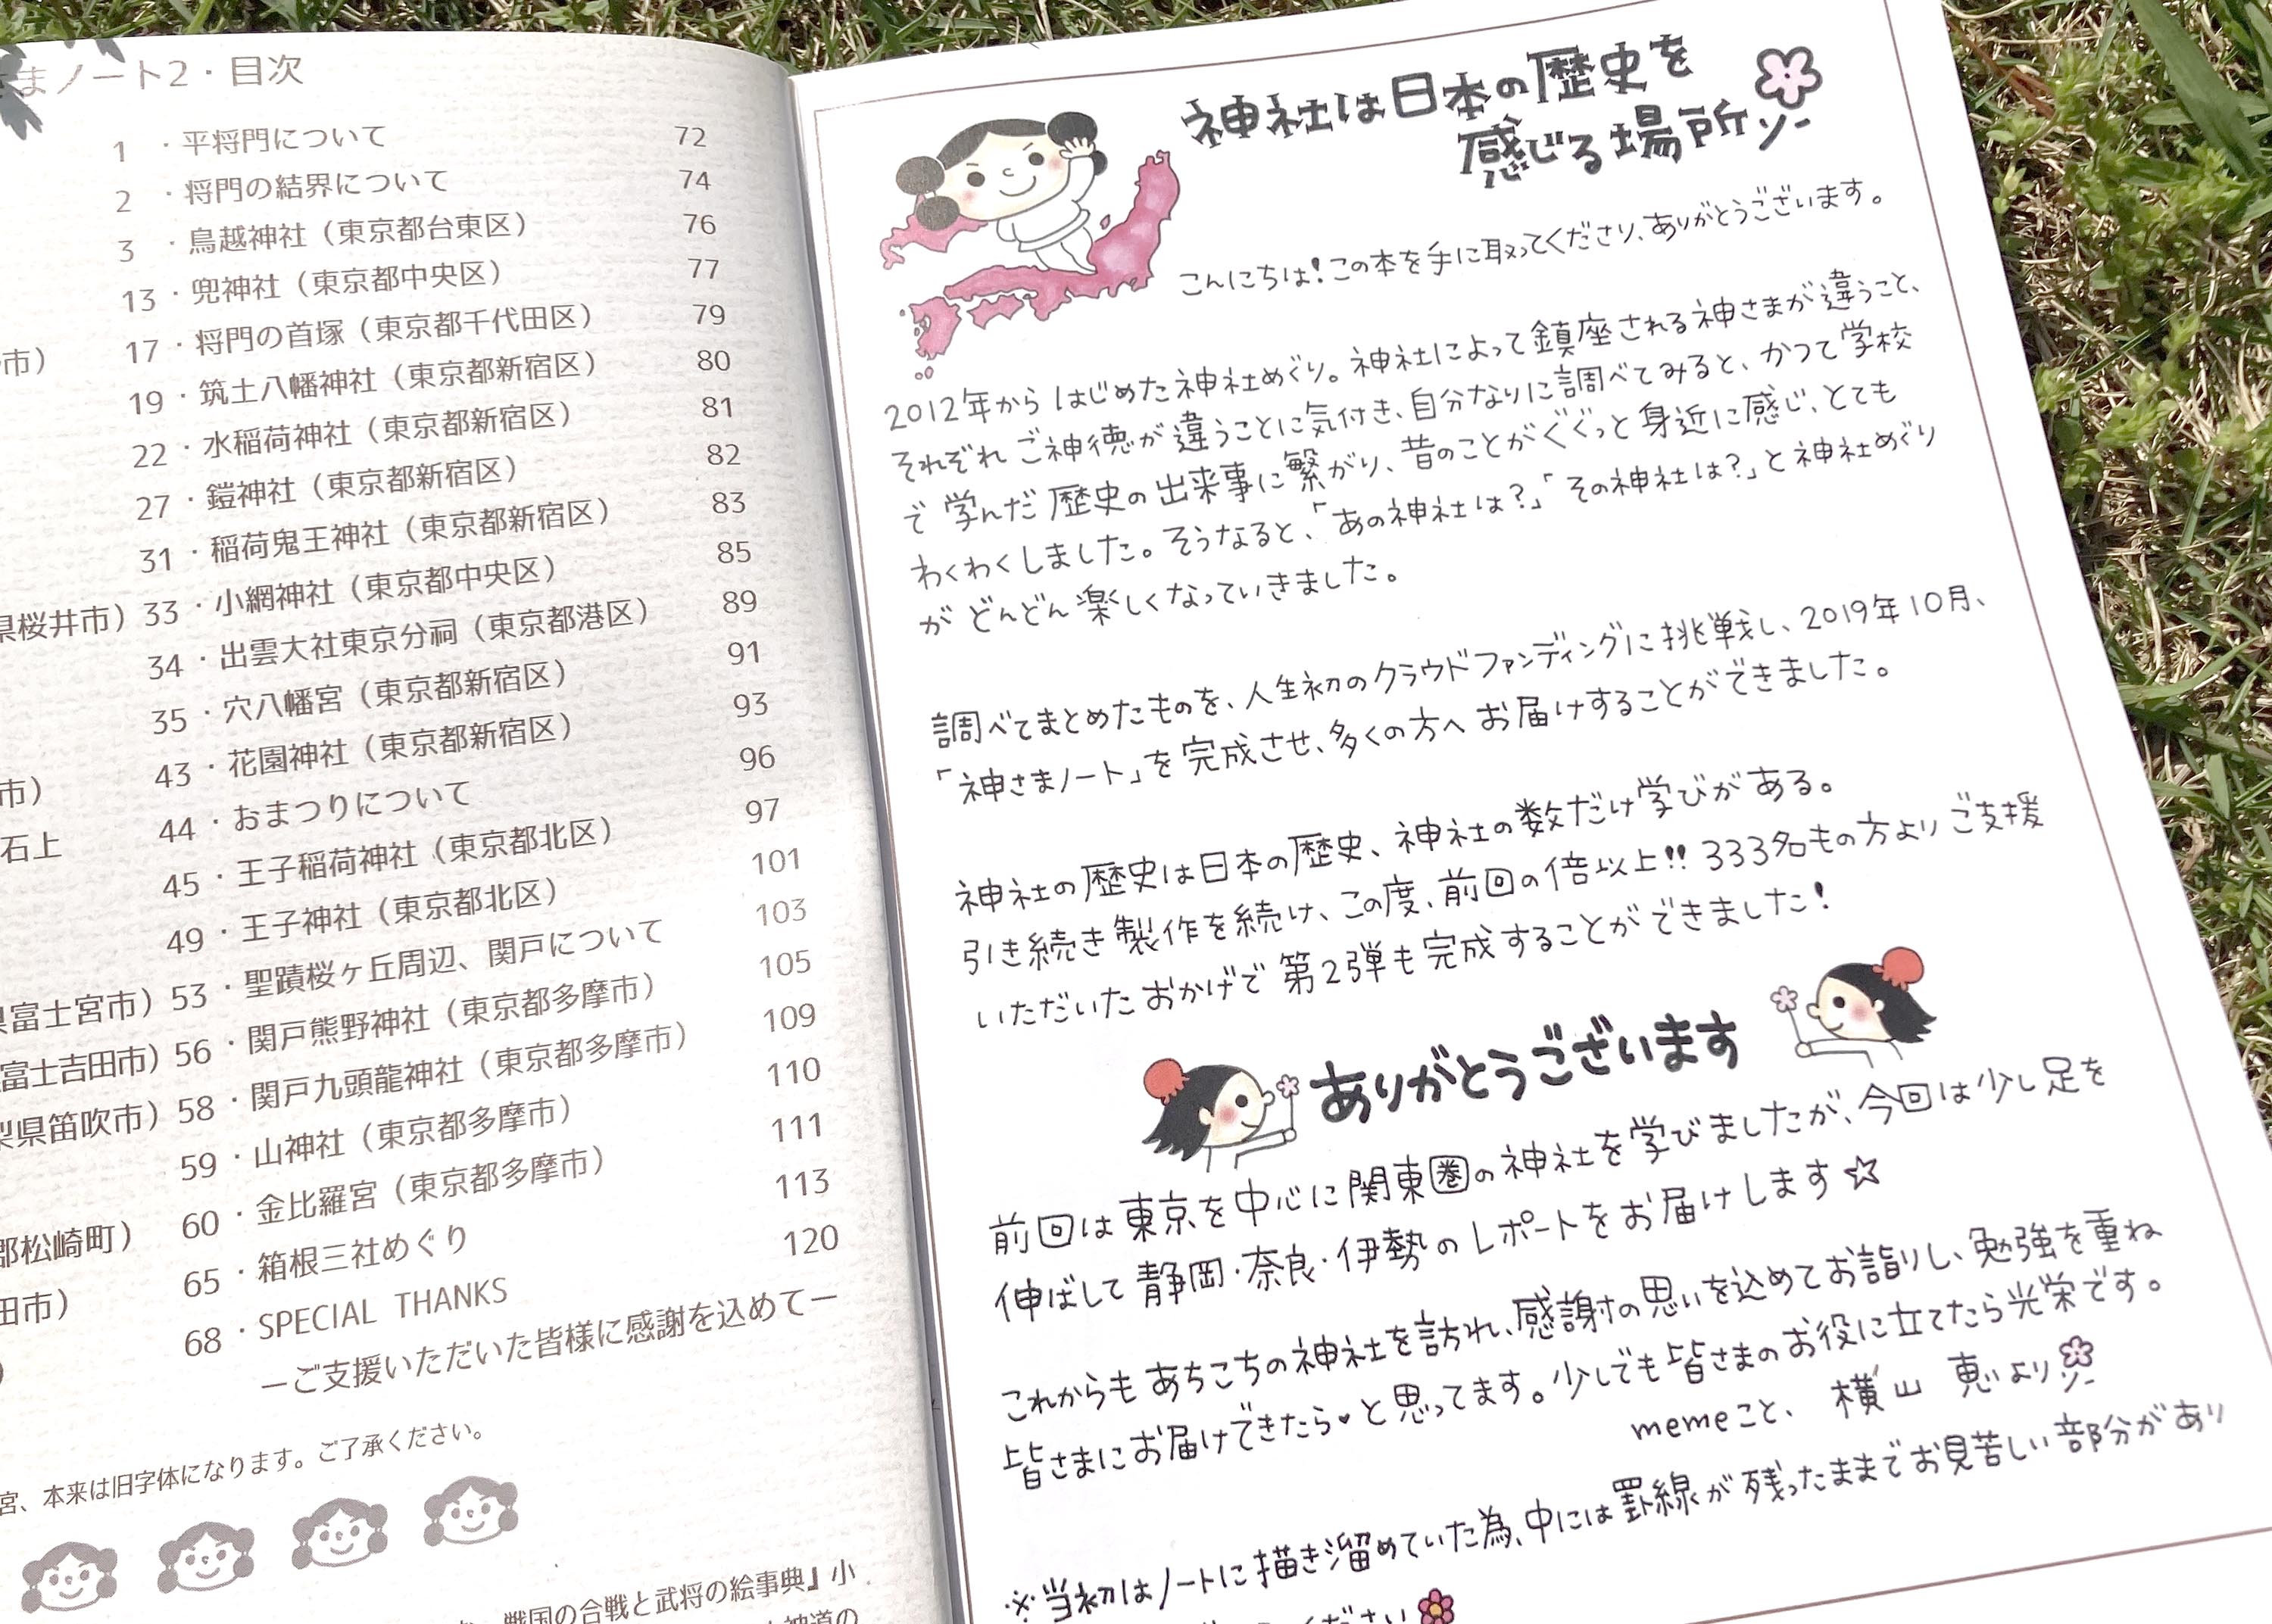 まノート2・目次
1
2
3
13
市） 17
19
22
27
31
県桜井市）33
34
35
43
市） 44
石上 45
49
富士宮市）53
富士吉田市）56
梨県笛吹市）58
59
郡松崎町） 60
田市） 65
68
・平将門について 72
・将門の結界について 74
・鳥越神社（東京都台東区） 76
・兜神社（東京都中央区） 77
・将門の首塚（東京都千代田区） 79
・筑土八幡神社（東京都新宿区） 80
・水稲荷神社（東京都新宿区） 81
・鎧神社（東京都新宿区） 82
・稲荷鬼王神社（東京都新宿区） 83
・小網神社（東京都中央区） 85
・出雲大社東京分祠（東京都港区） 89
・穴八幡宮（東京都新宿区） 91
・花園神社（東京都新宿区） 93
・おまつりについて 96
・王子稲荷神社（東京都北区） 97
・王子神社（東京都北区） 101
・聖蹟桜ヶ丘周辺、関戸について 103
・関戸熊野神社（東京都多摩市） 105
・関戸九頭龍神社（東京都多摩市） 109
・山神社（東京都多摩市） 110
・金比羅宮（東京都多摩市） 111
・箱根三社めぐり 113
・SPECIAL THANKS 120
ーご支援いただいた皆様に感謝を込めてー
宮、本来は旧字体になります。ご了承ください。
戦国の合戦と武将の絵事典』小
神道の
神社は日本の歴史を
感じる場所
こんにちは！この本を手に取ってくださり、ありがとうございます。
2012年からはじめた神社めぐり。神社によって鎮座される神さまが違うこと、
それぞれご神徳が違うことに気付き、自分なりに調べてみると、かつて学校
で学んだ歴史の出来事に繋がり、昔のことがぐぐっと身近に感じ、とても
わくわくしました。そうなると、「あの神社は？」「その神社は？」と神社めぐり
がどんどん楽しくなっていきました。
調べてまとめたものを、人生初のクラウドファンディングに挑戦し、2019年10月、
「神さまノート」を完成させ、多くの方へお届けすることができました。
神社の歴史は日本の歴史、神社の数だけ学びがある。
引き続き製作を続け、この度、前回の倍以上！！333名もの方よりご支援
いただいたおかげで第2弾も完成することができました！
ありがとうございます
前回は東京を中心に関東圏の神社を学びましたが、今回は少し足を
伸ばして静岡・奈良・伊勢のレポートをお届けします☆
これからもあちこちの神社を訪れ、感謝の思いを込めてお詣りし、勉強を重ね
皆さまにお届けできたら♥と思ってます。少しでも皆さまのお役に立てたら光栄です。
memeこと、横山 恵より
※当初はノートに描き溜めていた為、中には罫線が残ったままでお見苦しい部分があり
ください